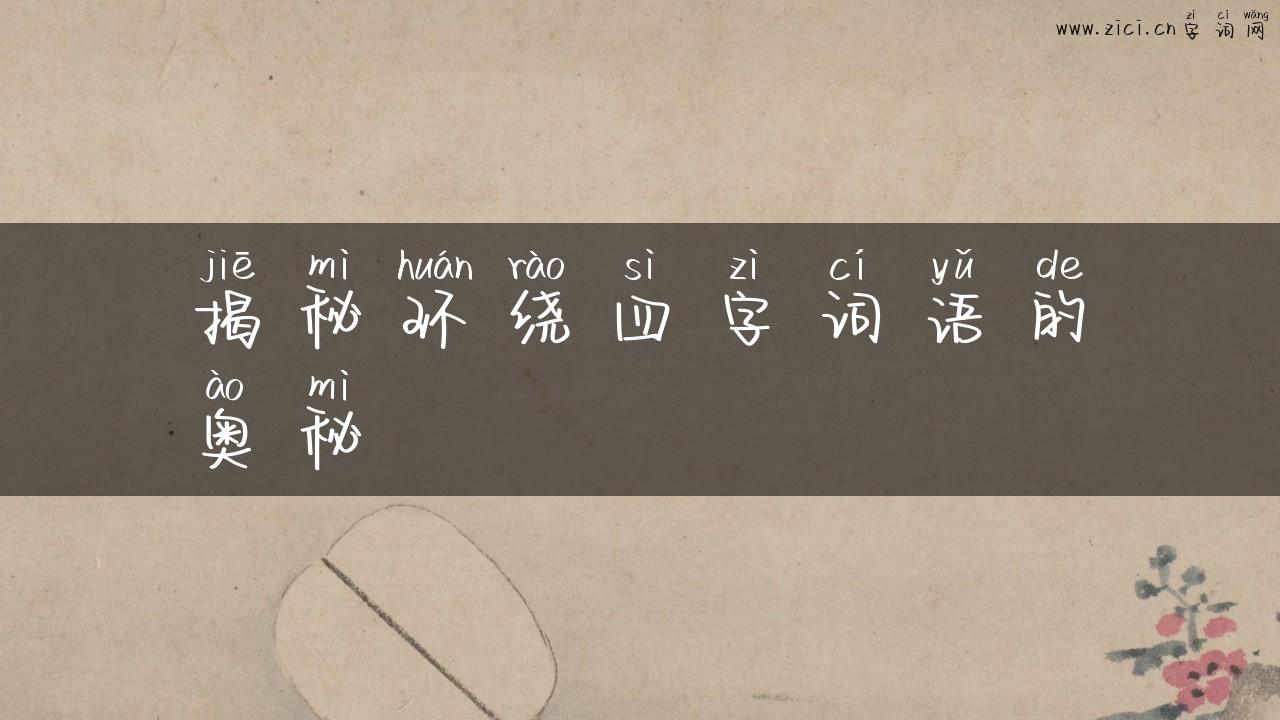 zì cí wǎng
www.zici.cn字词网
jiē mì huán rào sì zì cí yǔ de
揭秘环绕四字词语的
ào mì
奥秘